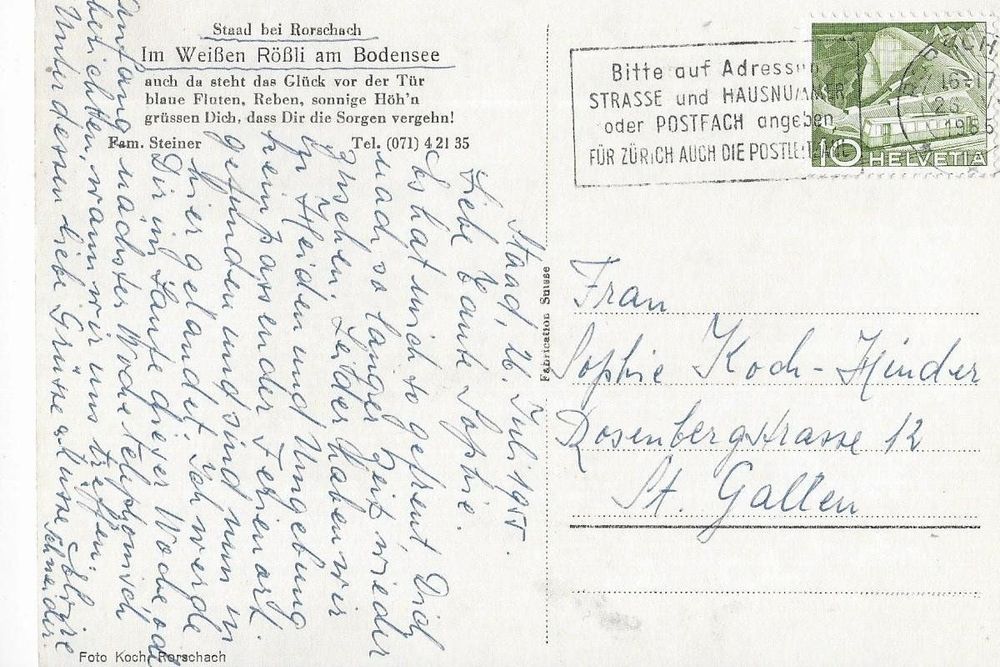 Staad bei Rorschach
Im Weißen Rößli am Bodensee
auch da steht das Glück vor der Tür
blaue Fluten, Reben, sonnige Höh'n
grüssen Dich, dass Dir die Sorgen vergehn!
Fam. Steiner Tel. (071) 4 21 35
Staad, 26. Juli 1955.
Liebe Tante Sophie.
Es hat mich so gefreut Dich
nach so langer Zeit wieder
zu sehen. Leider haben wir
in Heiden und Umgebung
kein passender Ferienort
gefunden und sind nun in
hier gelandet. Ich werde
Dir im Laufe dieser Woche od.
Anfang nächster Woche telefonisch
berichten, wann wir uns treffen.
Unterdessen liebe Grüsse & Küsse
Schneider
Foto Koch, Rorschach
Fabrication Suisse
Bitte auf Adressen
STRASSE und HAUSNUMMER
oder POSTFACH angeben,
FÜR ZÜRICH AUCH DIE
HELVETIA
10
Frau
Sophie Koch-Hinder
Rosenbergstrasse 12
St. Gallen